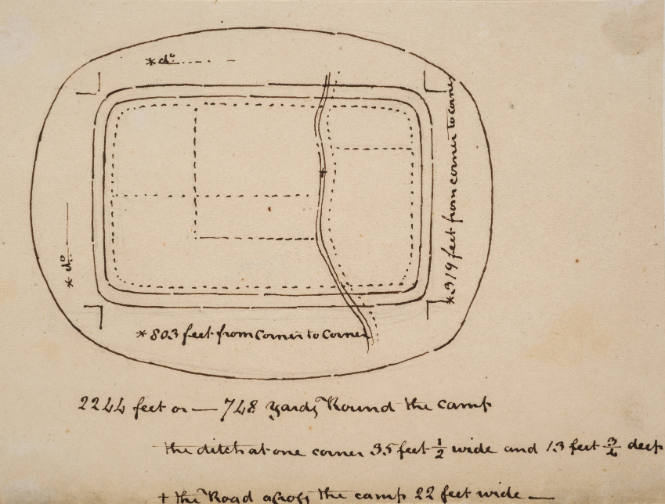 * do
* 319 feet from corner to corner
* do
* 803 feet from Corner to Corner
2244 feet or — 748 yards Round the camp
the ditch at one corner 35 feet ½ wide and 13 feet ¾ deep
+ the Road across the camp 22 feet wide —